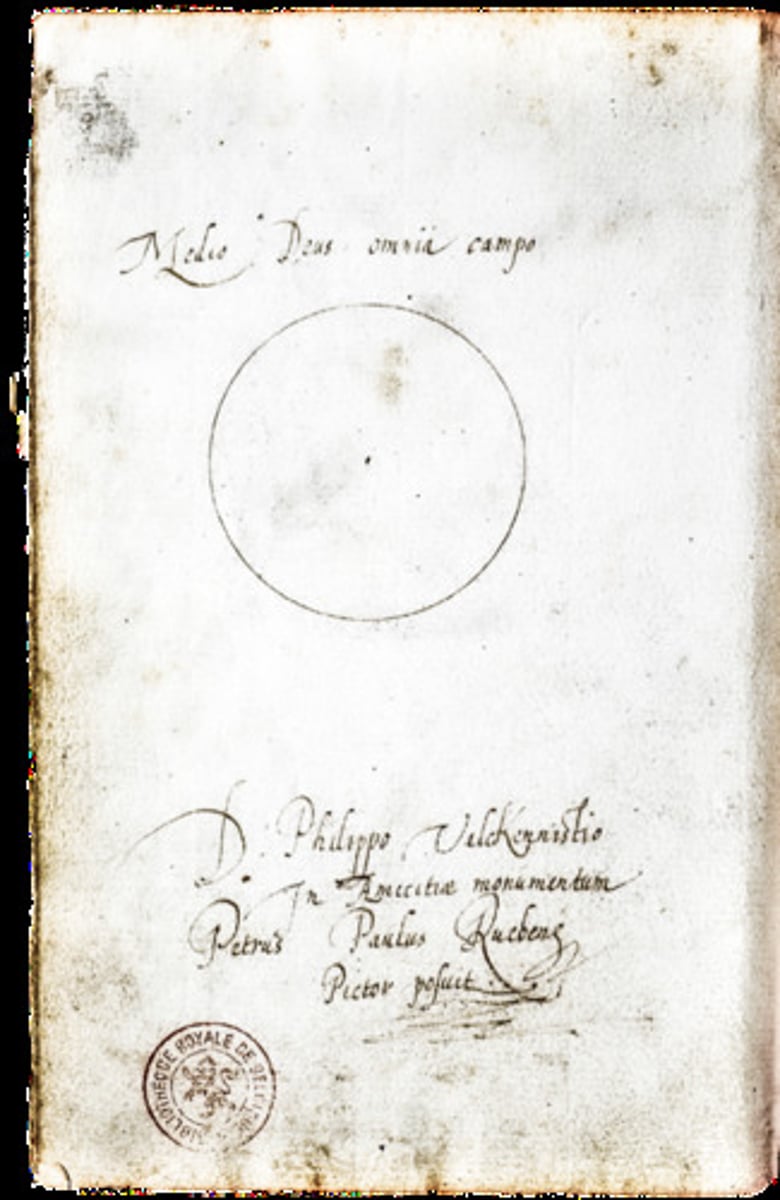 Medio Deus omnia campo
D. Philippo Valckennistio
In Amicitiæ monumentum
Petrus Paulus Ruebens
Pictor posuit.
BIBLIOTHÈQUE ROYALE DE BELGIQUE